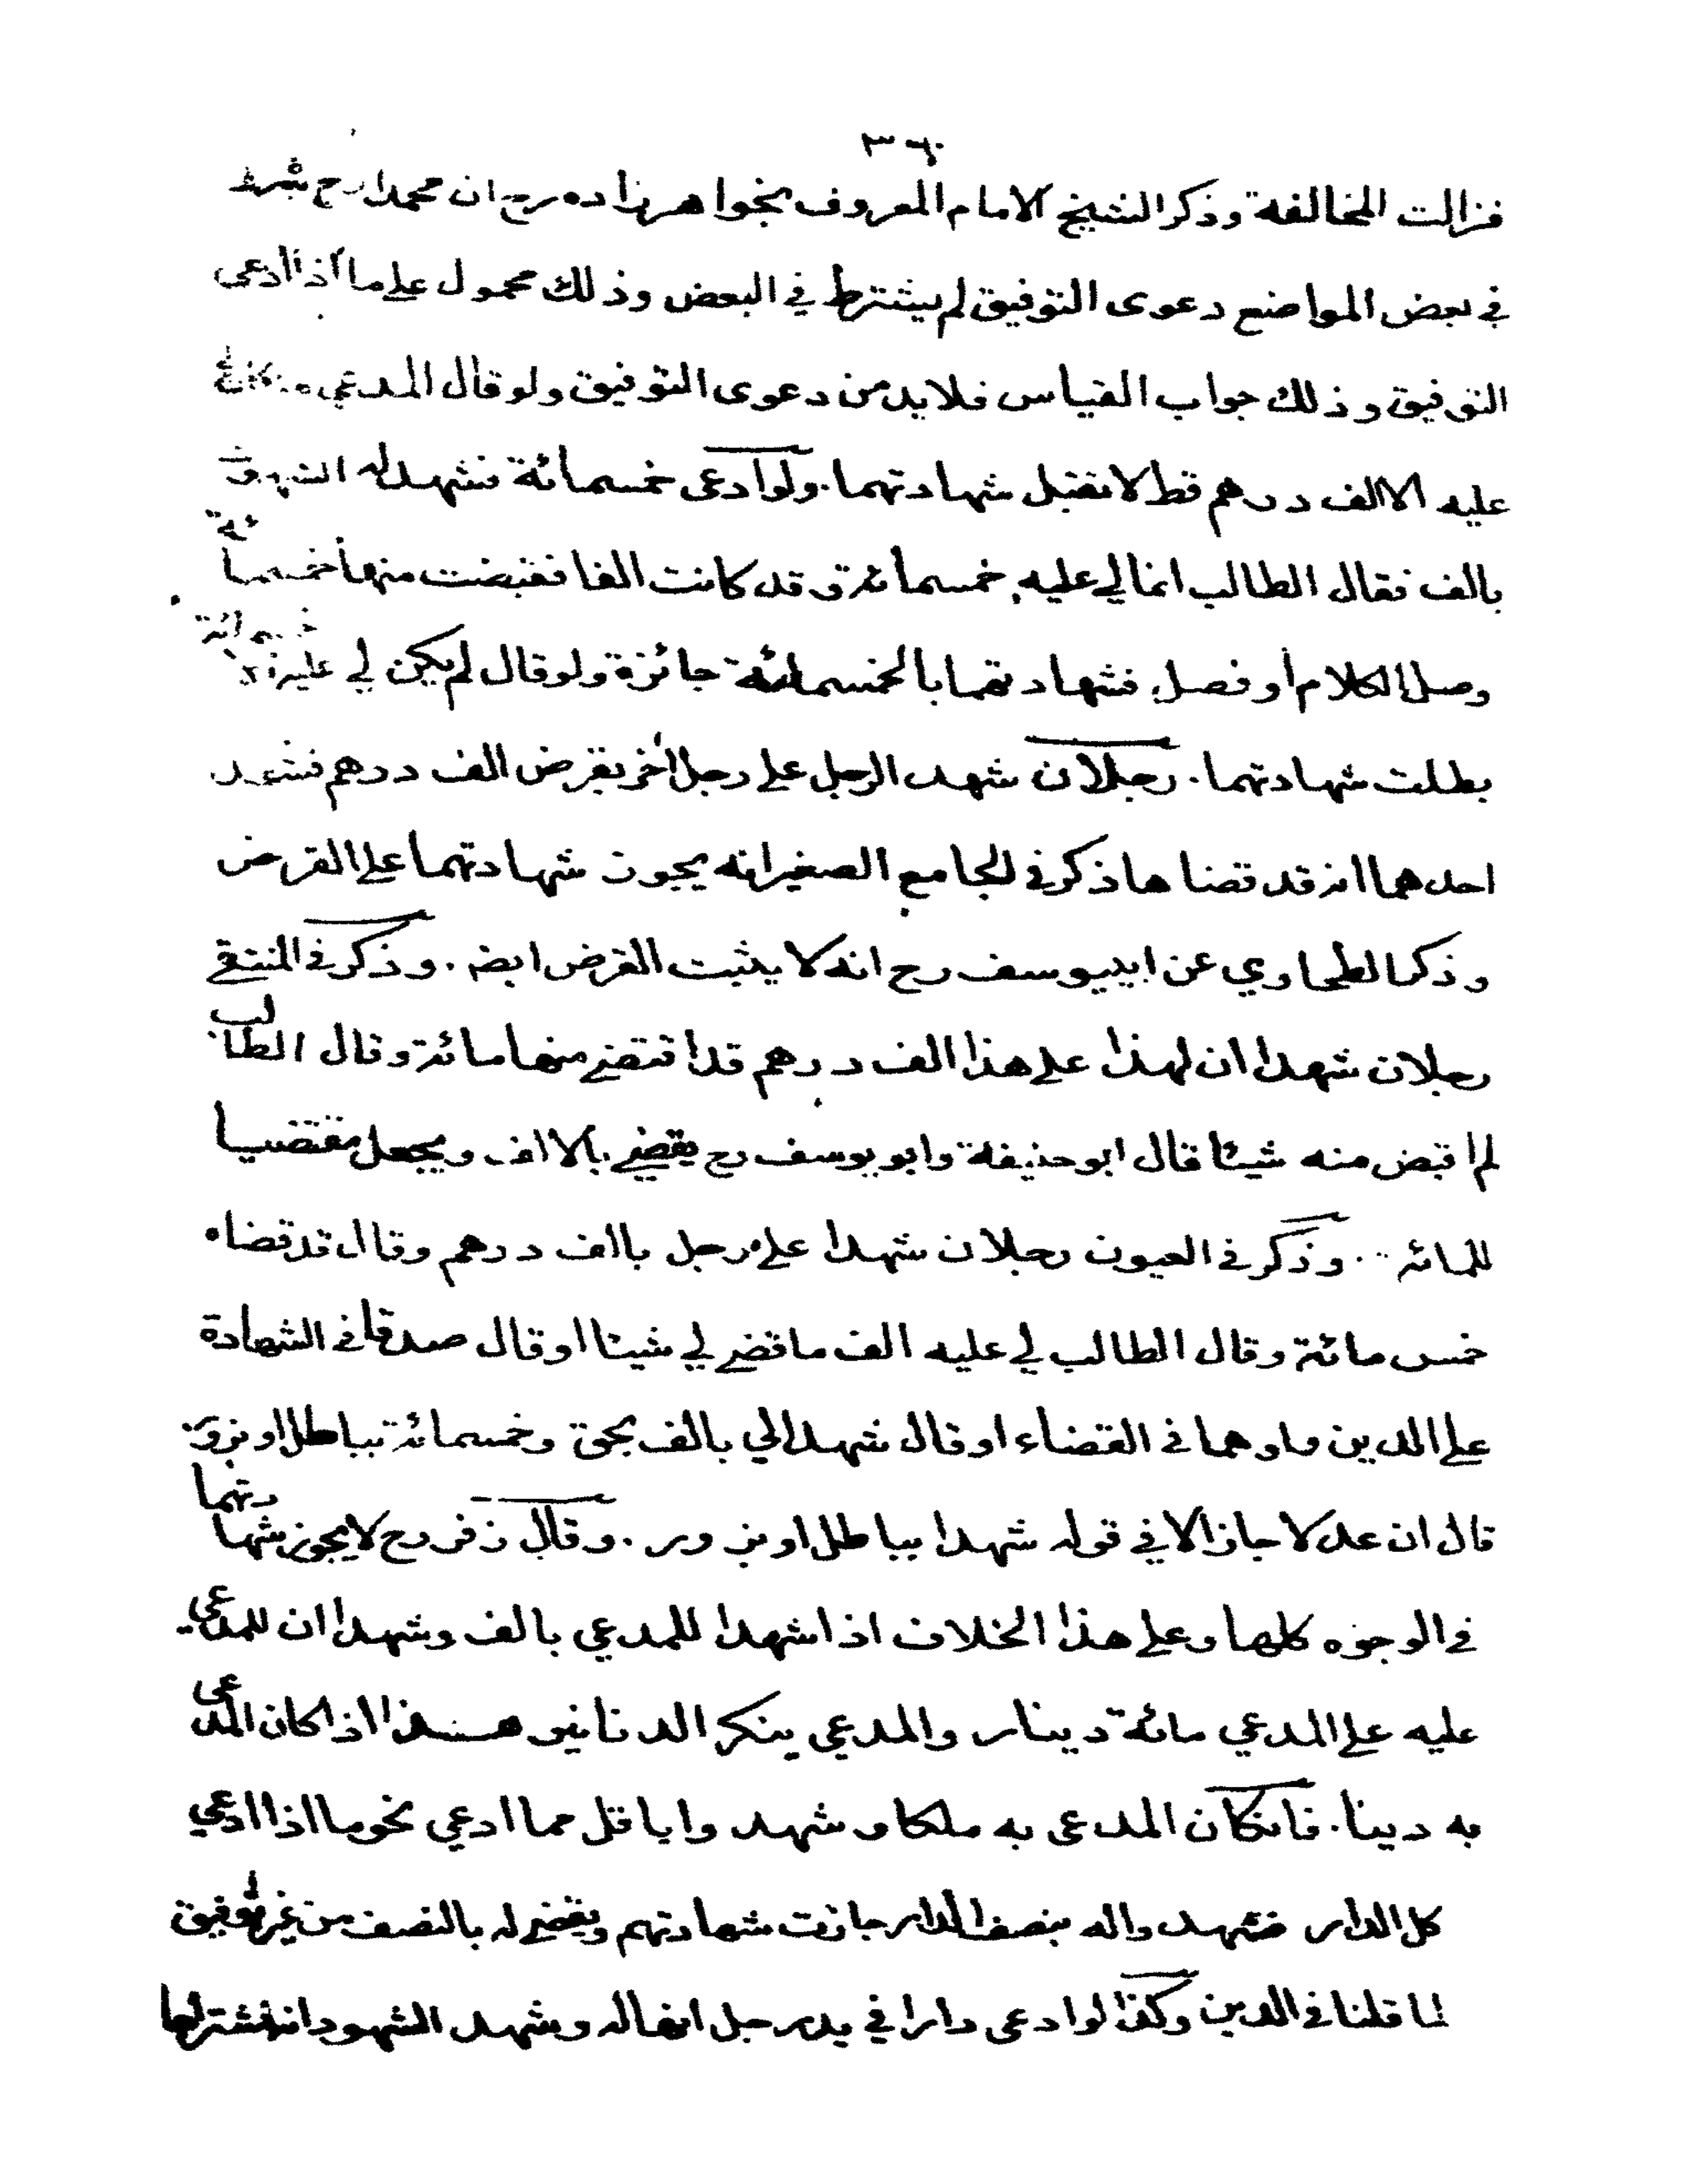 ٣٦٠
فزالت المخالفة وذكر الشيخ الامام المعروف بخواهرزاده رح ان محمدا رح شرط
في بعض المواضع دعوى التوفيق لم يشترط في البعض وذلك محمول على ما اذا ادعى
التوفيق وذلك جواب القياس فلا بد من دعوى التوفيق ولو قال المدعي ما كان
عليه الا الف درهم قط لا تقبل شهادتهما . ولو ادعى خمسمائة فشهد له الشهود
بالف فقال الطالب انما لي عليه خمسمائة وقد كانت الفا فقبضت منها خمسمائة
وصل الكلام او فصل فشهادتهما بالخمسمائة جائزة ولو قال لم يكن لي عليه الا خمسمائة
بطلت شهادتهما . رجلان شهدا لرجل على رجل اخر بقرض الف درهم فشهد
احدهما انه قد قضاها ذكر في الجامع الصغير انه يجوز شهادتهما على القرض
وذكر الطحاوي عن ابييوسف رح انه لا يثبت القرض ايضا . وذكر في المنتقى
رجلان شهدا ان لهذا على هذا الف درهم قد اقتضى منها مائة وقال الطالب
لم اقبض منه شيئا قال ابو حنيفة وابو يوسف رح يقضى بالالف ويجعل مقتضيا
للمائة . وذكر في العيون رجلان شهدا على رجل بالف درهم وقالا قد قضاه
خمس مائة وقال الطالب لي عليه الف ما قضى لي شيئا او قال صدقا في الشهادة
على الدين واوهما في القضاء او قال شهدا لي بالف بحق وخمسمائة بباطل او بزور
قال ان عدلا جاز الا في قوله شهدا بباطل او بزور . وقال زفر رح لا يجوز شهادتهما
في الوجوه كلها وعلى هذا الخلاف اذا شهدا للمدعي بالف وشهدا ان للمدعي
عليه على المدعي مائة دينار والمدعي ينكر الدنانير هذا اذا كان المدعى
به دينا . فان كان المدعى به ملكا وشهدوا باقل مما ادعي نحو ما اذا ادعي
كل الدار فشهدوا له بنصف الدار جازت شهادتهم ويقضى له بالنصف من غير توفيق
لما قلنا في الدين وكذا لو ادعى دارا في يد رجل انها له وشهد الشهود انه اشتراها